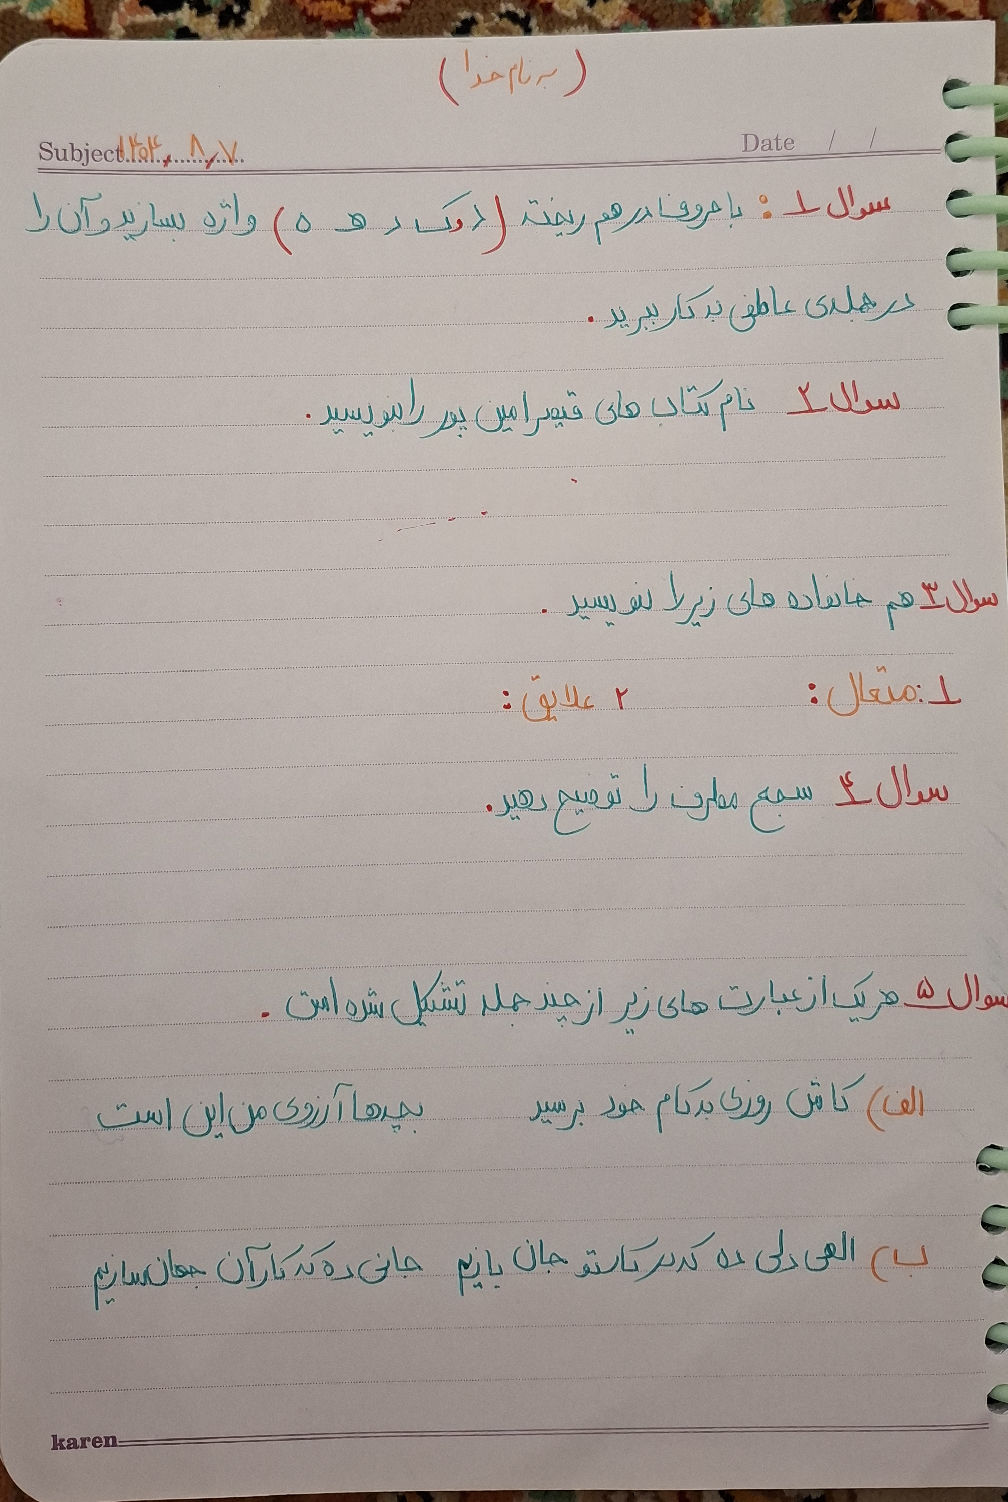 (به نام خدا)
Subject ۱۴۰۴,۸,۷ Date / /
سوال ۱ : با حروف درهم ریخته (د و ک د ه ه) واژه بسازید و آن را
در جمله‌ی عاطفی به کار ببرید.
سوال ۲ نام کتاب های قیصر امین پور را بنویسید.
سوال ۳ هم خانواده های زیر را بنویسید.
۱: متعال: ۲ علایق:
سوال ۴ سجع مطرف را توضیح دهید.
سوال ۵ هر یک از عبارت های زیر از چند جمله تشکیل شده است.
الف) کاش روزی به کام خود برسید بچه‌ها آرزوی من این است
ب) الهی دلی ده که در کار تو جان بازیم جانی ده که کار آن جهان سازیم
karen